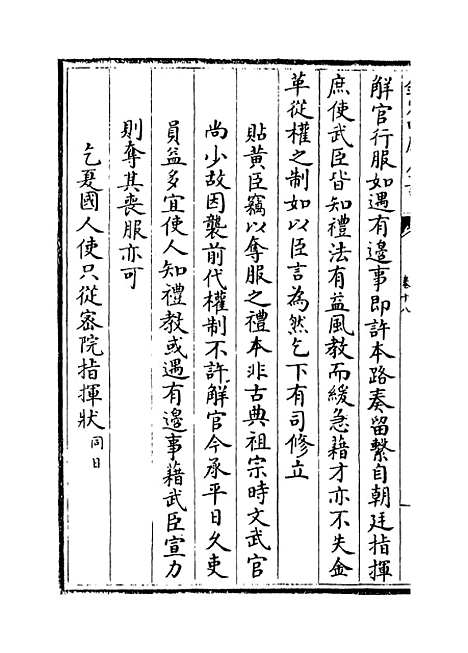 卷十八
解官行服如遇有邉事即許本路奏留繫自朝廷指揮
庶使武臣皆知禮法有益風教而緩急藉才亦不失金
革從權之制如以臣言為然乞下有司修立
貼黄臣竊以奪服之禮本非古典祖宗時文武官
尚少故因襲前代權制不許解官今承平日久吏
員益多宜使人知禮教或遇有邉事藉武臣宣力
則奪其喪服亦可
乞夏國人使只從密院指揮狀同日